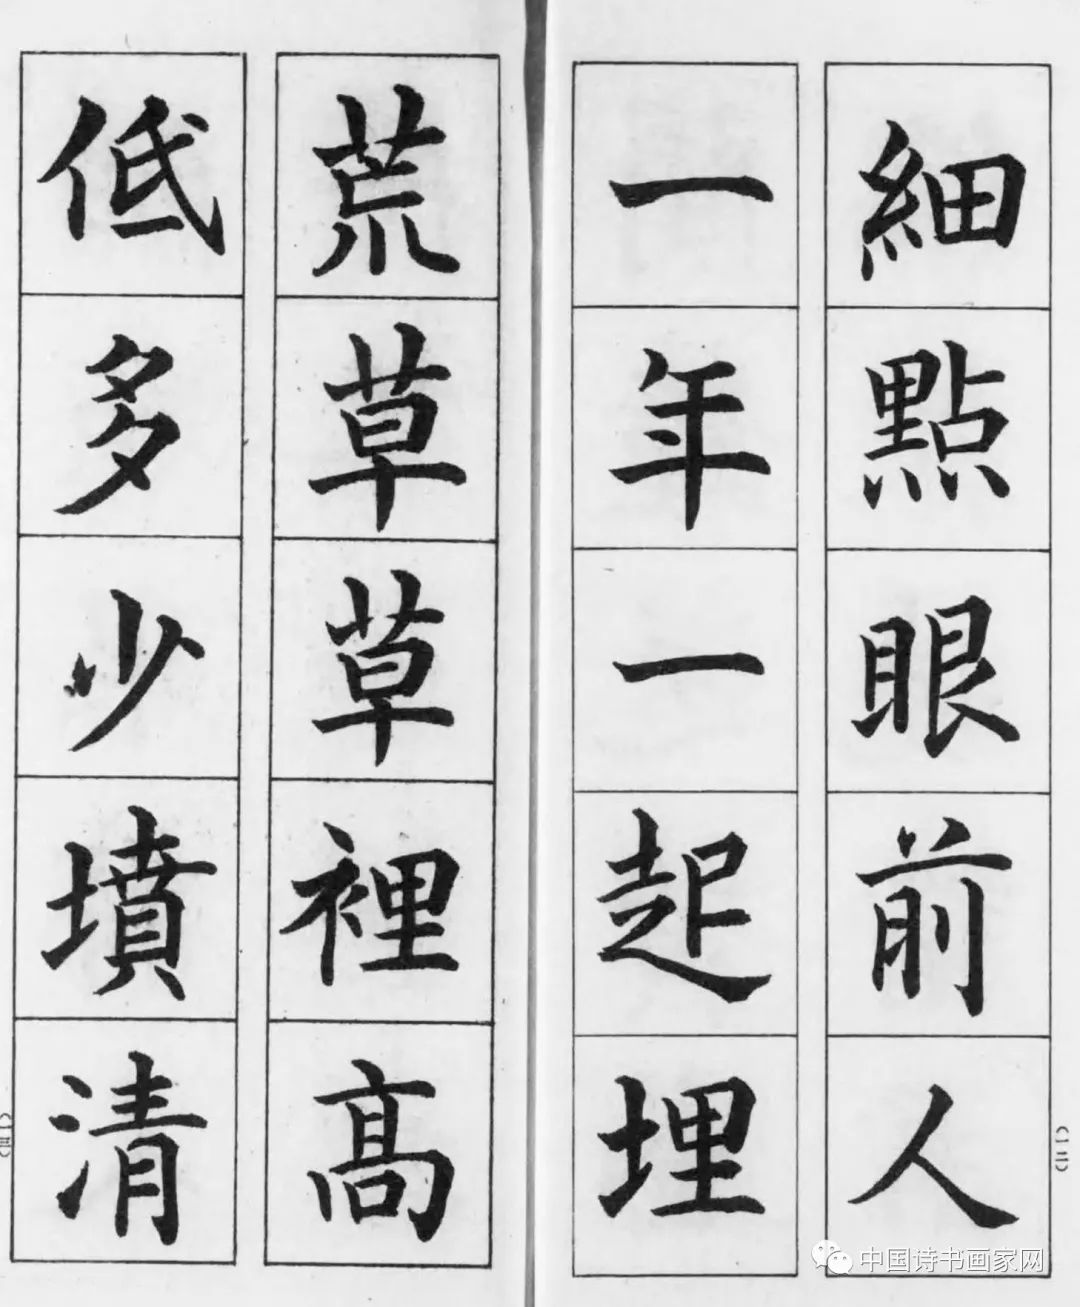 細點眼前人
一年一起埋
荒草草裡高
低多少墳清
(一二)
(一三)
中国诗书画家网